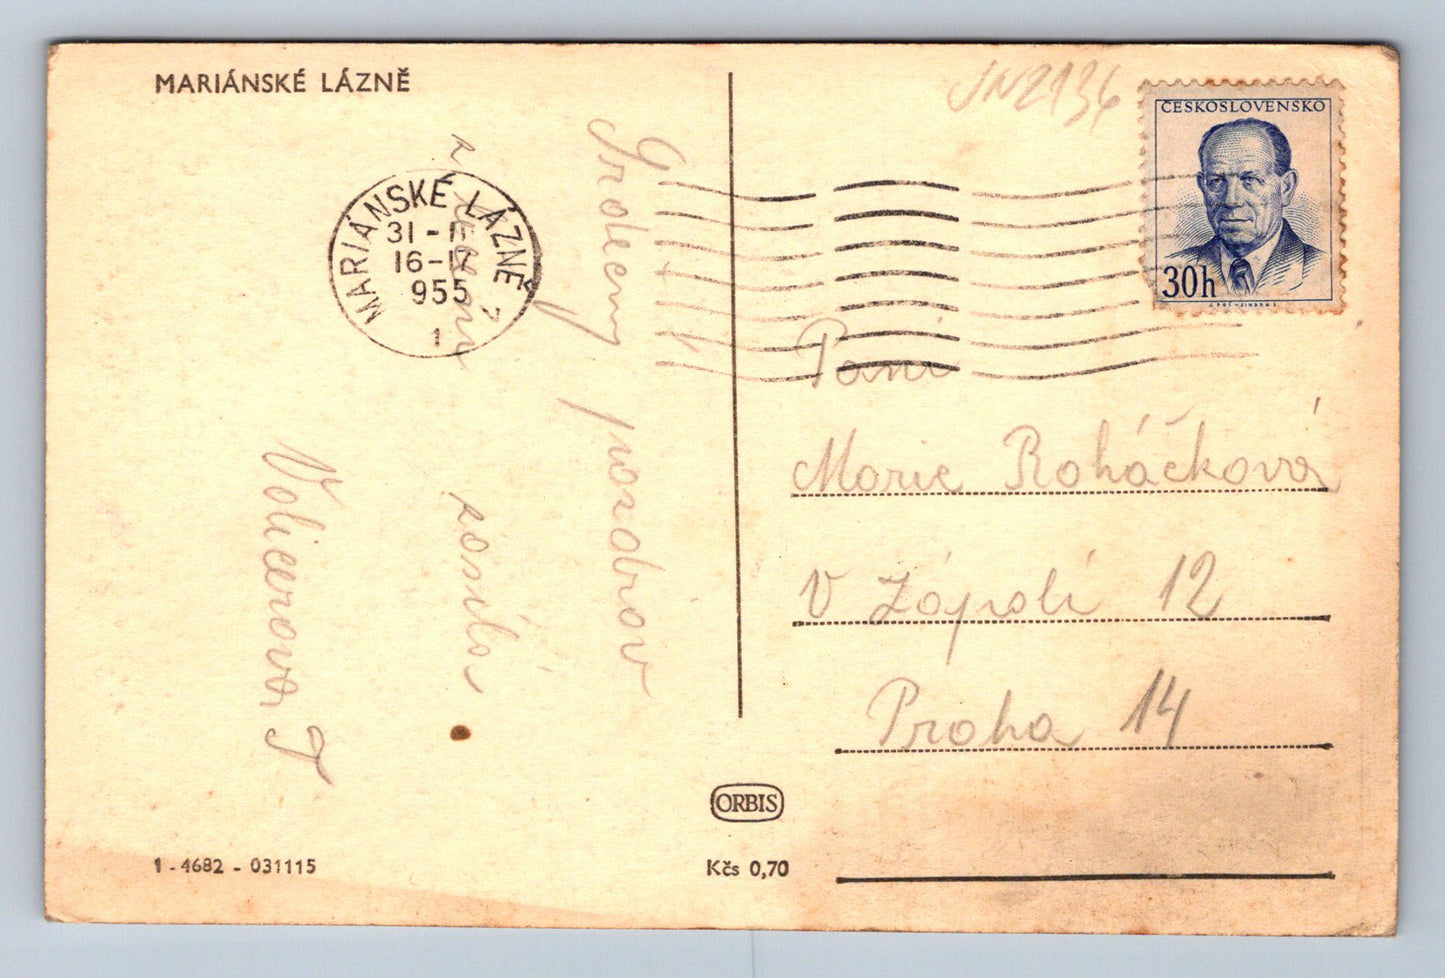 MARIÁNSKÉ LÁZNĚ
JN2136
ČESKOSLOVENSKO
30h
MARIÁNSKÉ LÁZNĚ
16-17
955
1
Srdečný
pozdrav
z
zasílá
Volicerova J
Paní
Marie Roháčková
V Zápolí 12
Praha 14
ORBIS
1 - 4682 - 031115
Kčs 0,70